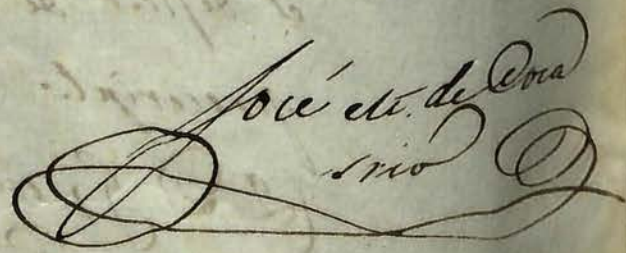 José M. de Coca
srio